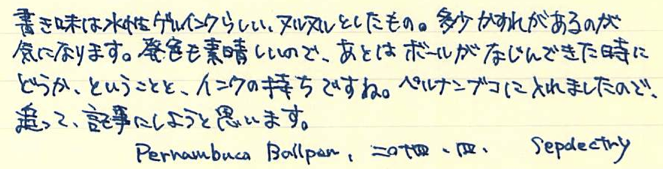 書き味は水性ゲルインクらしい、ヌルヌルとしたもの。多少かすれがあるのが
気になります。発色も素晴しいので、あとはボールがなじんできた時に
どうか、ということと、インクの持ちですね。ペルナンブコに入れましたので、
追って、記事にしようと思います。
Pernambuco Ballpen, 二〇十四.四. Sepolectry